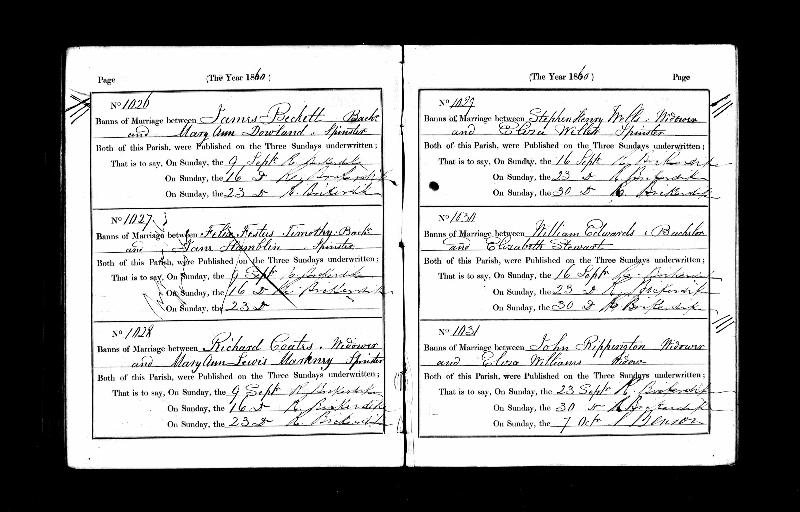 Page (The Year 1860)
No 1026
Banns of Marriage between James Beckett Bach
and Mary Ann Dowland Spinster
Both of this Parish, were Published on the Three Sundays underwritten;
That is to say, On Sunday, the 9 Sept R
On Sunday, the 16 D R
On Sunday, the 23 D R
No 1027
Banns of Marriage between Felix Festus Timothy Bach
and Jane Hamblin Spinster
Both of this Parish, were Published on the Three Sundays underwritten;
That is to say, On Sunday, the 9 Sept
On Sunday, the 16 D R
On Sunday, the 23 D
No 1028
Banns of Marriage between Richard Coates Widower
and Mary Ann Lewis Spinster
Both of this Parish, were Published on the Three Sundays underwritten;
That is to say, On Sunday, the 9 Sept R
On Sunday, the 16 D R
On Sunday, the 23 D R
(The Year 1860) Page
No 1029
Banns of Marriage between Stephen Henry Wells Widower
and Eliza Spinster
Both of this Parish, were Published on the Three Sundays underwritten;
That is to say, On Sunday, the 16 Sept R
On Sunday, the 23 D R
On Sunday, the 30 D R
No 1030
Banns of Marriage between William Edwards Bachelor
and Elizabeth Stewart
Both of this Parish, were Published on the Three Sundays underwritten;
That is to say, On Sunday, the 16 Sept
On Sunday, the 23 D R
On Sunday, the 30 D R
No 1031
Banns of Marriage between John Rippington Widower
and Eliza Williams Widow
Both of this Parish, were Published on the Three Sundays underwritten;
That is to say, On Sunday, the 23 Sept R
On Sunday, the 30 D R
On Sunday, the 7 Octr Benson